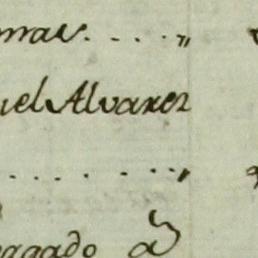 mas. . . . "
uel Alvarez
. . . . . . . . "
egado a